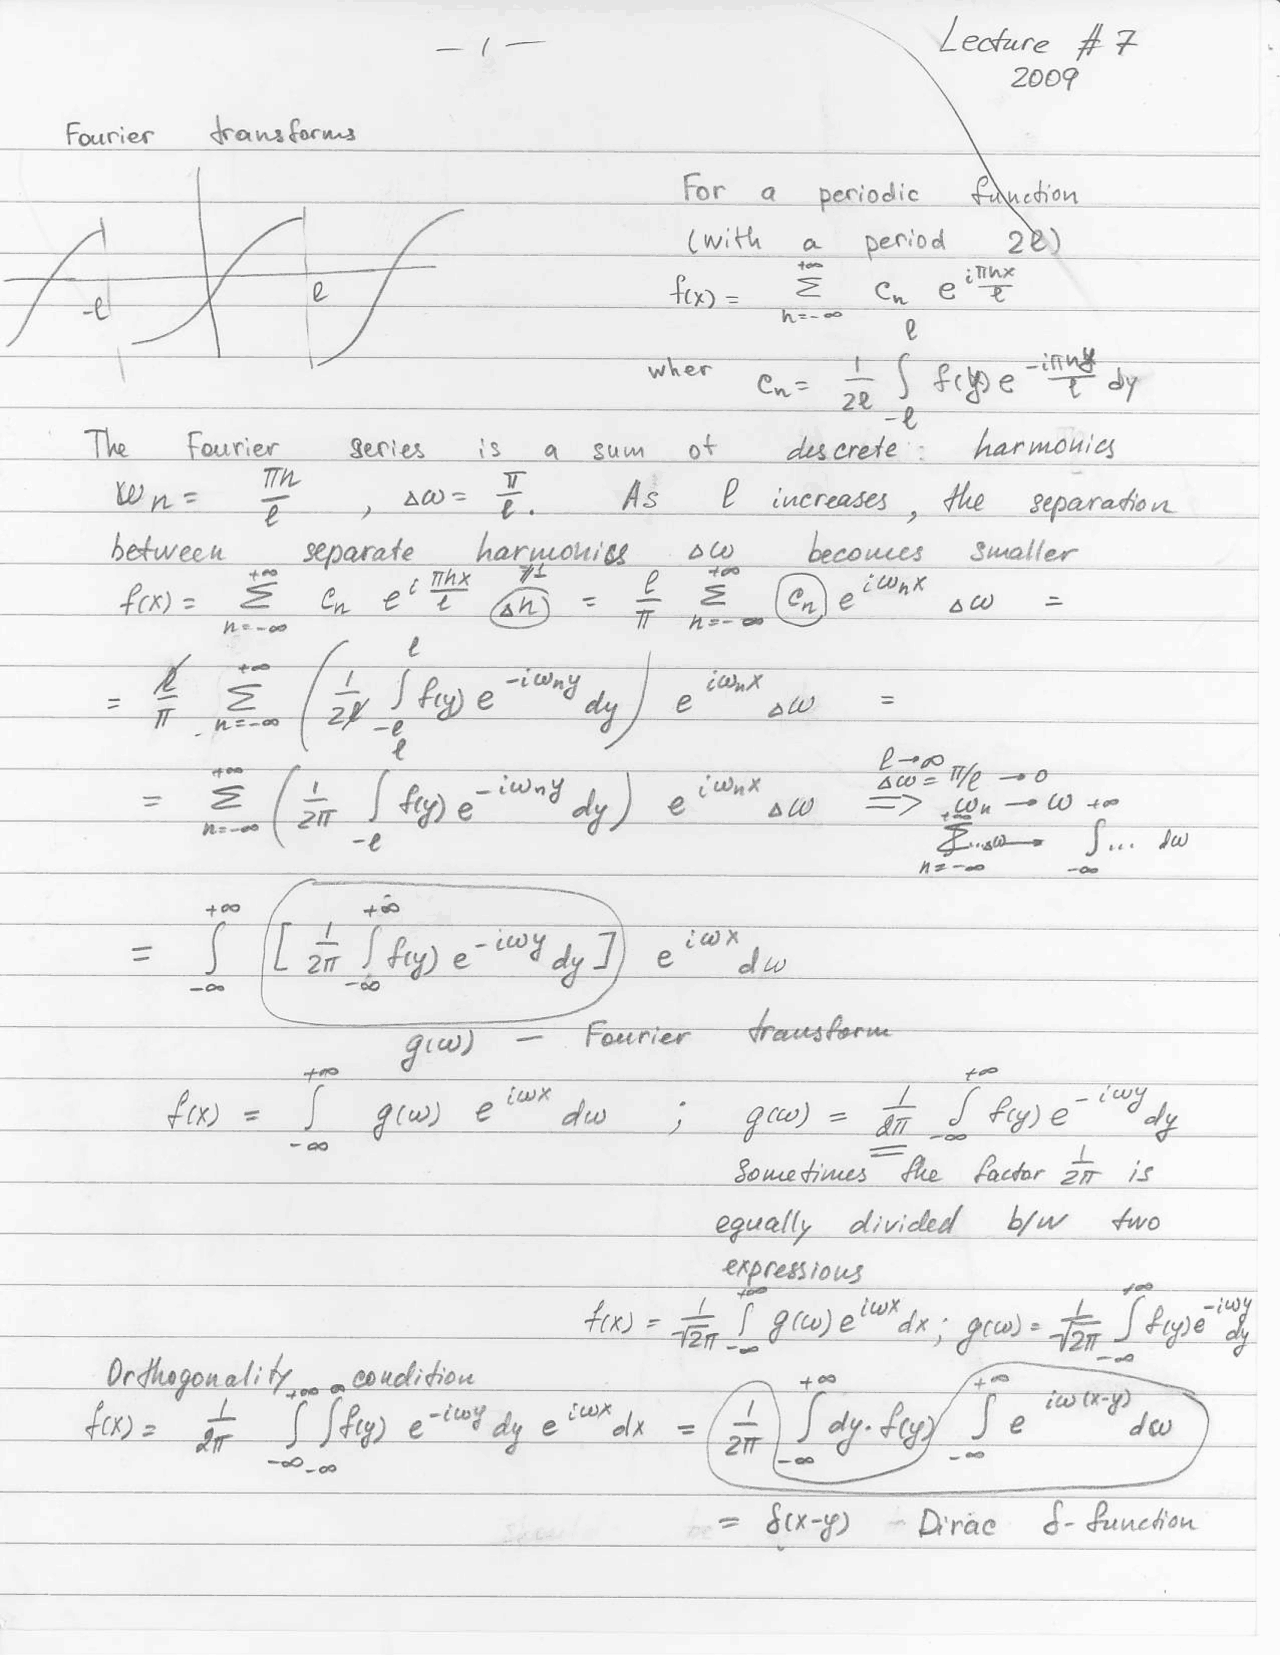 — 1 —
Lecture # 7
2009
Fourier transforms
For a periodic function
(with a period 2ℓ)
f(x) = Σ_{n=-∞}^{+∞} c_n e^{iπnx/ℓ}
-ℓ ℓ
wher c_n = 1/2ℓ ∫_{-ℓ}^{ℓ} f(y) e^{-iπny/ℓ} dy
The Fourier series is a sum of descrete harmonics
ω_n = πn/ℓ , Δω = π/ℓ. As ℓ increases, the separation
between separate harmonics Δω becomes smaller
f(x) = Σ_{n=-∞}^{+∞} c_n e^{iπnx/ℓ} Δn = ℓ/π Σ_{n=-∞}^{+∞} c_n e^{iω_n x} Δω =
= ℓ/π Σ_{n=-∞}^{+∞} ( 1/2ℓ ∫_{-ℓ}^{ℓ} f(y) e^{-iω_n y} dy ) e^{iω_n x} Δω =
= Σ_{n=-∞}^{+∞} ( 1/2π ∫_{-ℓ}^{ℓ} f(y) e^{-iω_n y} dy ) e^{iω_n x} Δω =>
ℓ→∞
Δω = π/ℓ → 0
ω_n → ω
Σ_{n=-∞}^{+∞} ...Δω → ∫_{-∞}^{+∞} ... dω
= ∫_{-∞}^{+∞} [ 1/2π ∫_{-∞}^{+∞} f(y) e^{-iωy} dy ] e^{iωx} dω
g(ω) — Fourier transform
f(x) = ∫_{-∞}^{+∞} g(ω) e^{iωx} dω ; g(ω) = 1/2π ∫_{-∞}^{+∞} f(y) e^{-iωy} dy
Sometimes the factor 1/2π is
equally divided b/w two
expressions
f(x) = 1/√2π ∫_{-∞}^{+∞} g(ω) e^{iωx} dx ; g(ω) = 1/√2π ∫_{-∞}^{+∞} f(y) e^{-iωy} dy
Orthogonality condition
f(x) = 1/2π ∫_{-∞}^{+∞} ∫_{-∞}^{∞} f(y) e^{-iωy} dy e^{iωx} dx = 1/2π ∫_{-∞}^{+∞} dy·f(y) ∫_{-∞}^{+∞} e^{iω(x-y)} dω
= δ(x-y) - Dirac δ-function